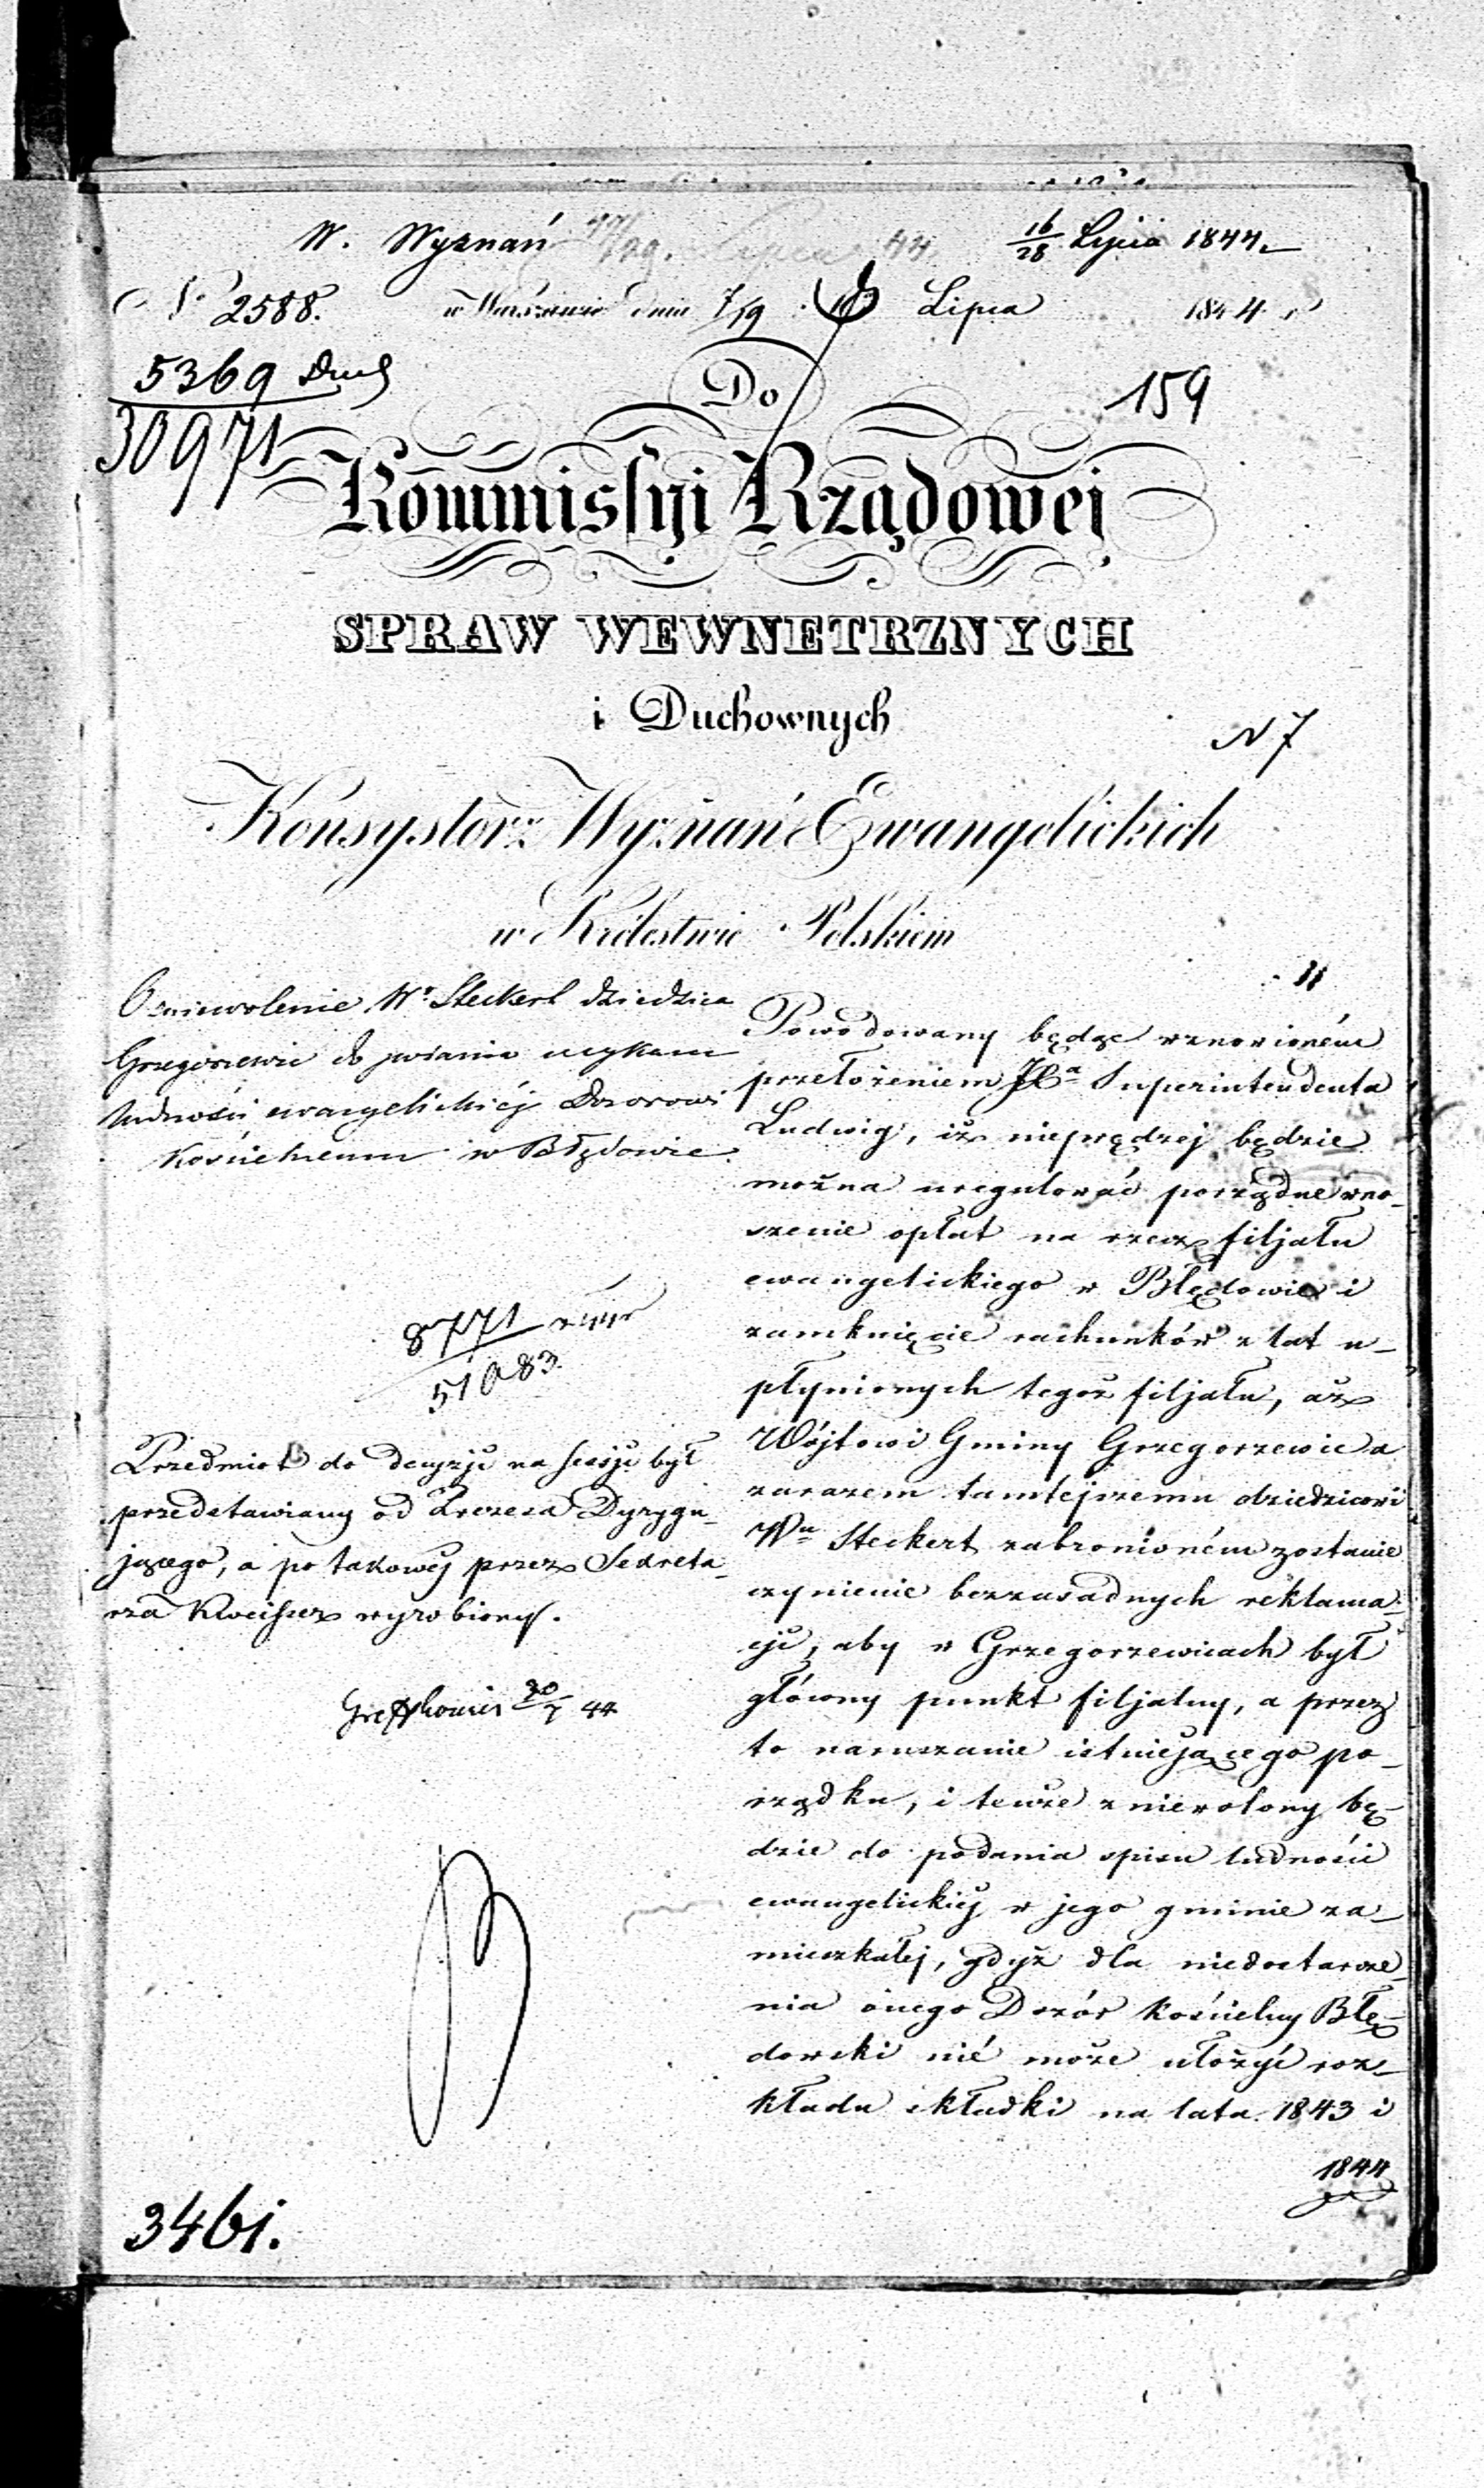 W. Wyznań
16/28 Lipca 1844
N 2588. w Warszawie dnia 7/19 Lipca 1844 r
5369 Duch
30971
Do
159
Kommissyi Rządowej
SPRAW WEWNETRZNYCH
i Duchownych
N 7
Konsystorz Wyznań Ewangelickich
w Królestwie Polskiem
O zniewolenie Wo Steckert dziedzica
Grzegorzewic do podania wykazu
ludności ewangelickiej Dozorowi
Kościelnemu w Błędowie.
8771
51083.
Przedmiot do decyzji na sessji był
przedstawiany od Prezesa Dyrygu-
jącego, a po takowej przez Sekreta-
rza wyrobiony.
20/7 44
3461.
Powodowany będąc wznowioném
przełożeniem JXa Superintendenta
Ludwig, iż nieprędzej będzie
można uregulować porządne wno-
szenie opłat na rzecz filjału
ewangelickiego w Błędowie i
zamknięcie rachunków z lat u-
płynionych tegoż filjału, aż
Wójtowi Gminy Grzegorzewice a
zarazem tamtejszemu dziedzicowi
Wu Steckert zabronioném zostanie
czynienie bezzasadnych reklama-
cji, aby w Grzegorzewicach był
główny punkt filjalny, a przez
to naruszanie istniejącego po-
rządku, i tenże zniewolony bę-
dzie do podania spisu ludności
ewangelickiej w jego gminie za-
mieszkałej, gdyż dla niedostarcze-
nia onego Dozór Kościelny Błę-
dowski nié może ułożyć roz-
kładu składki na lata 1843 i
1844